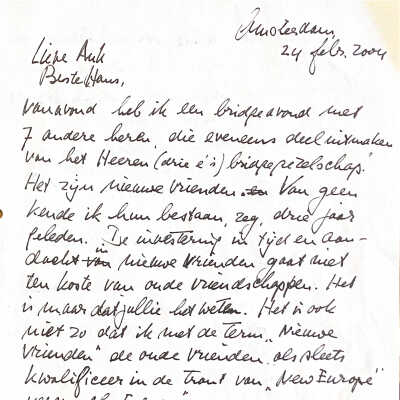 Amsterdam,
24 febr. 2004
Lieve Ank
Beste Hans,
Vanavond heb ik een bridgeavond met
7 andere heren die eveneens deel uitmaken
van het Heeren (drie e's) bridgegezelschap.
Het zijn nieuwe vrienden. Van geen
kende ik hun bestaan, zeg, drie jaar
geleden. De investering in tijd en aan-
dacht in nieuwe vrienden gaat niet
ten koste van oude vriendschappen. Het
is maar dat jullie het weten. Het is ook
niet zo dat ik met de term "Nieuwe
Vrienden" de oude vrienden als sleets
kwalificeer in de trant van "New Europe"